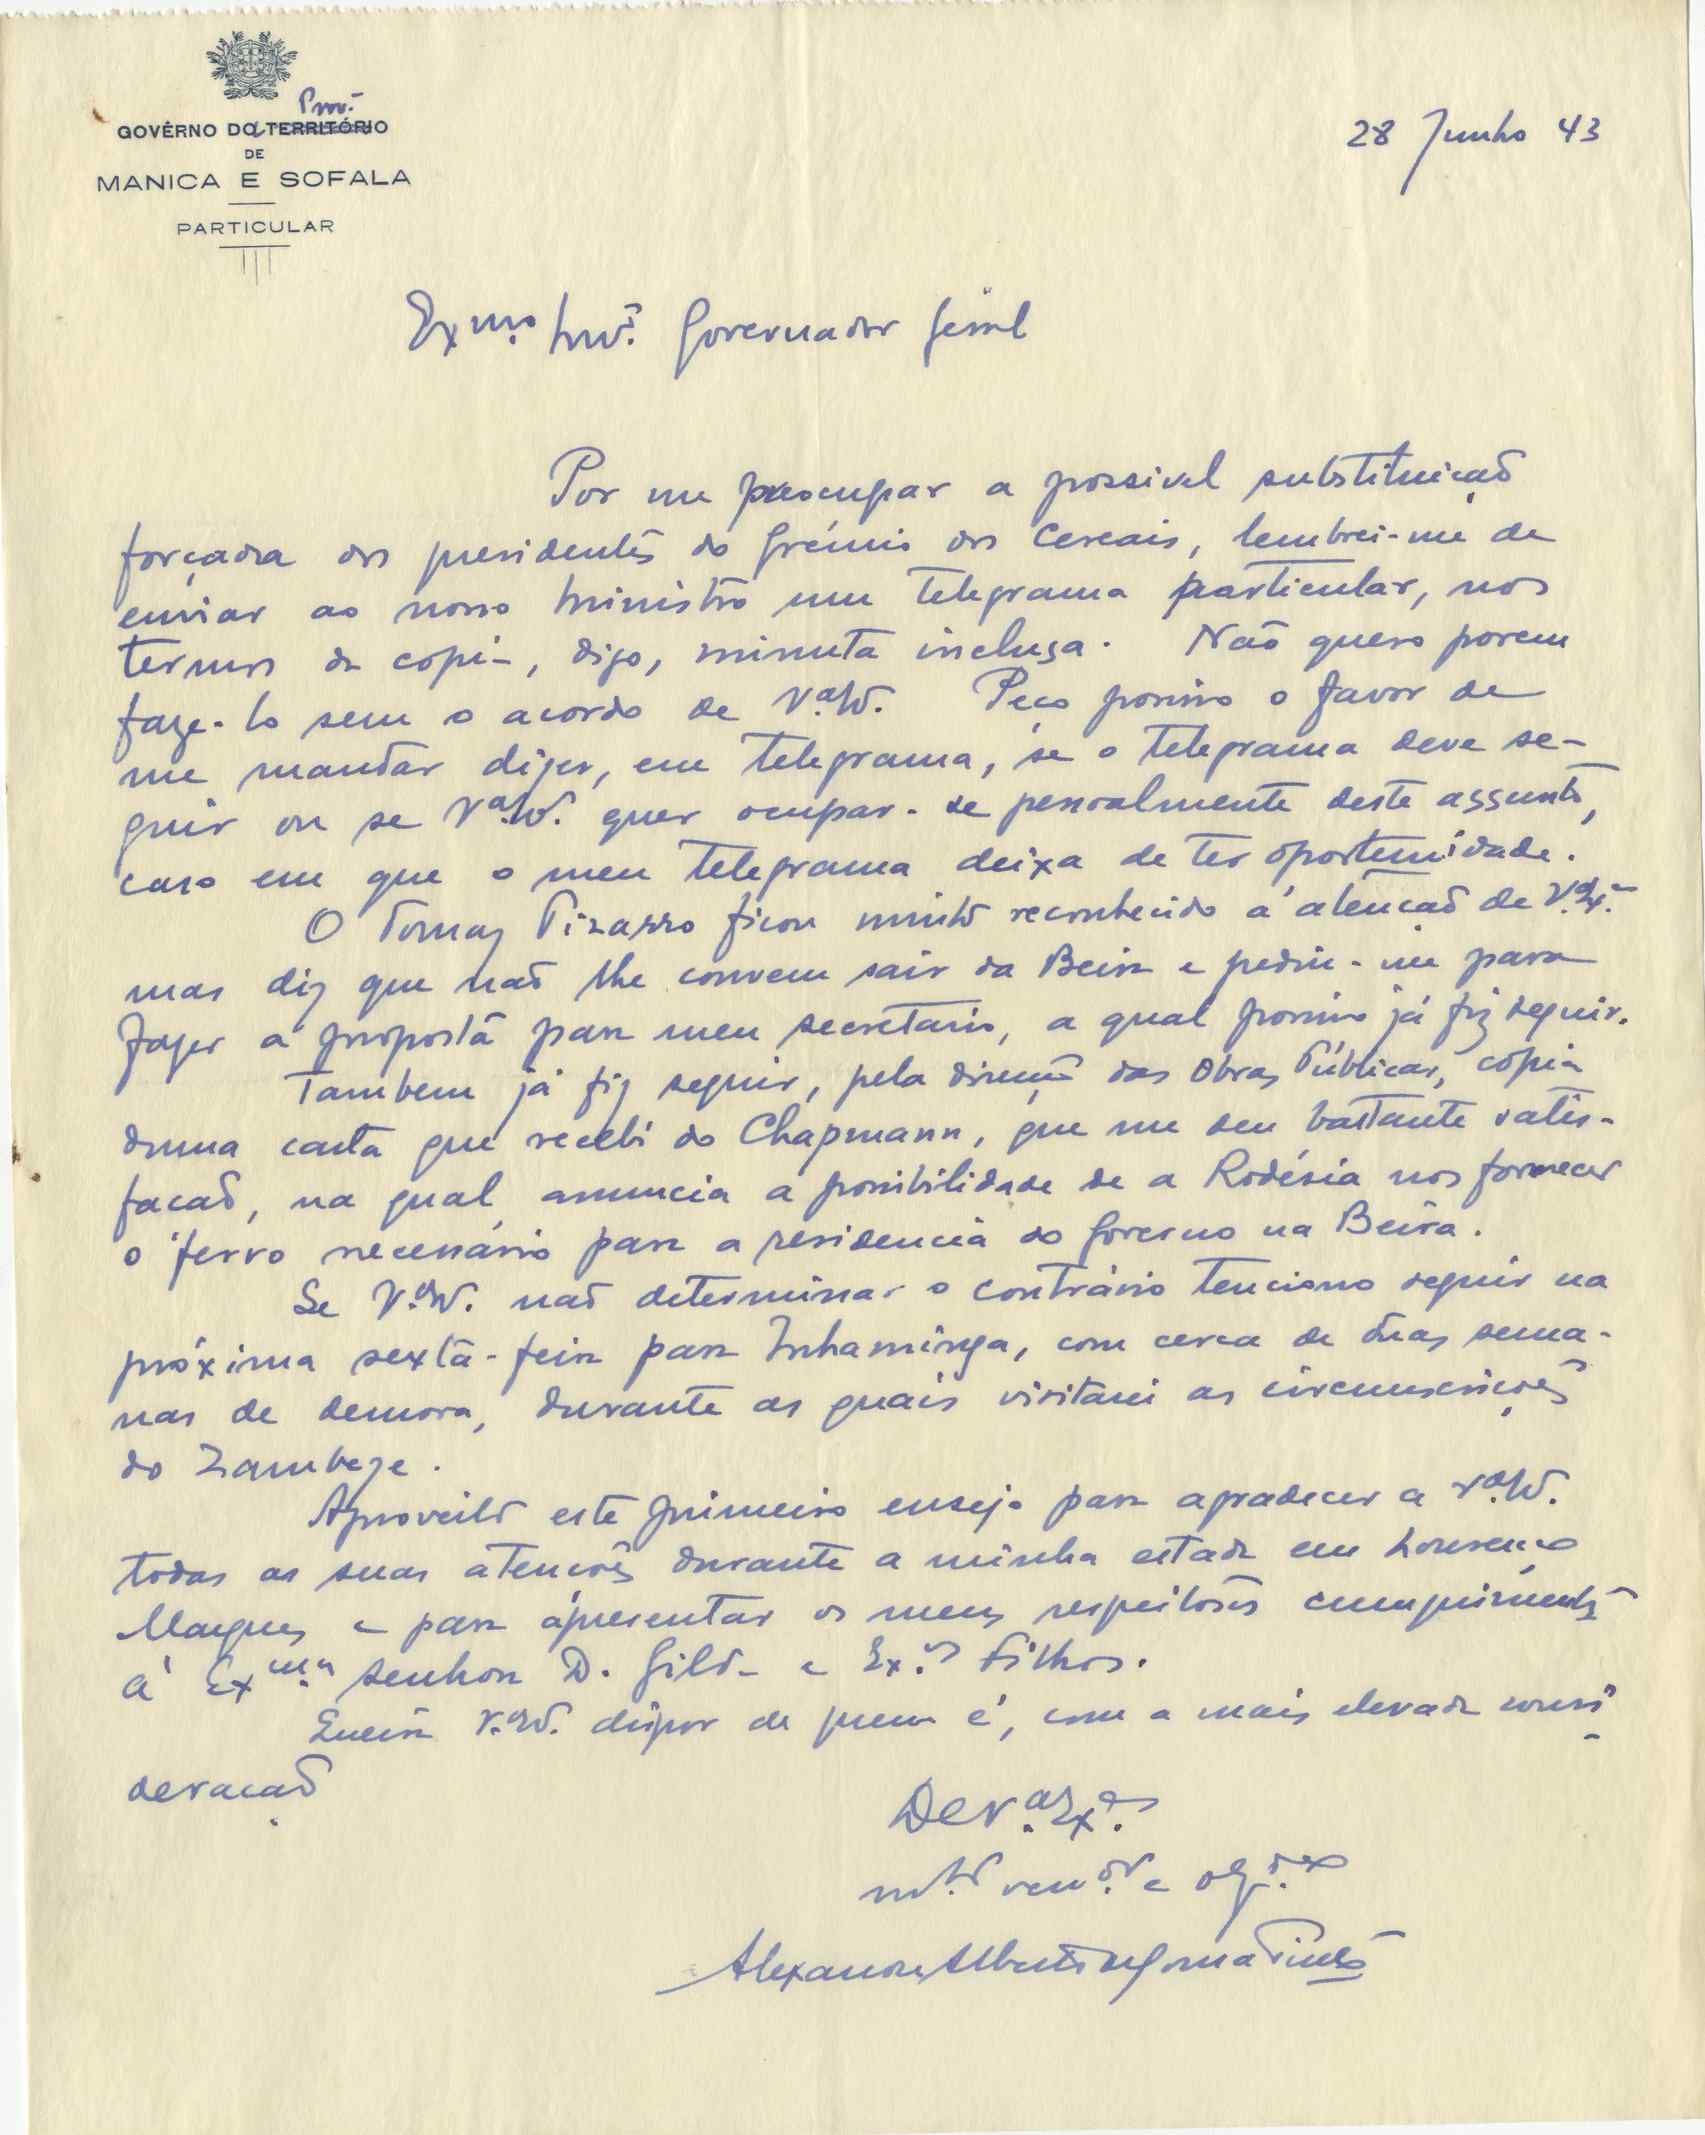 Prov.
GOVÊRNO DO TERRITÓRIO
DE
MANICA E SOFALA
PARTICULAR
28 Junho 43
Exmo. Snr. Governador Geral
Por me preocupar a possivel substituição
forçada dos presidentes do Grémio dos Cereais, lembrei-me de
enviar ao nosso Ministro um telegrama particular, nos
termos da copia, digo, minuta inclusa. Não quero porem
faze-lo sem o acordo de V.ª Ex.ª Peço porisso o favor de
me mandar dizer, em telegrama, se o telegrama deve se-
guir ou se V.ª Ex.ª quer ocupar-se pessoalmente deste assunto,
caso em que o meu telegrama deixa de ter oportunidade.
O Tomaz Pizarro ficou muito reconhecido á atenção de V.ª Ex.ª
mas diz que não lhe convem sair da Beira e pediu-me para
fazer a proposta para meu secretario, a qual porisso já fiz seguir.
Tambem já fiz seguir, pela direcção das Obras Públicas, copia
duma carta que recebi do Chapmann, que me deu bastante satis-
fação, na qual anuncia a possibilidade de a Rodésia nos fornecer
o ferro necessário para a residencia do Governo na Beira.
Se V.ª Ex.ª não determinar o contrário tenciono seguir na
próxima sexta-feira para Inhaminga, com cerca de duas sema-
nas de demora, durante as quais visitarei as circunscrições
do Zambeze.
Aproveito este primeiro ensejo para agradecer a V.ª Ex.ª
todas as suas atenções durante a minha estada em Lourenço
Marques e para apresentar os meus respeitosos cumprimentos
á Exma. Senhora D. Gilda e Ex.os Filhos.
Queira V.ª Ex.ª dispor de quem é, com a mais elevada consi-
deração
De V.ª Ex.ª
mto. venor. e obgdo.
Alexandre Alberto de Sousa Pinto